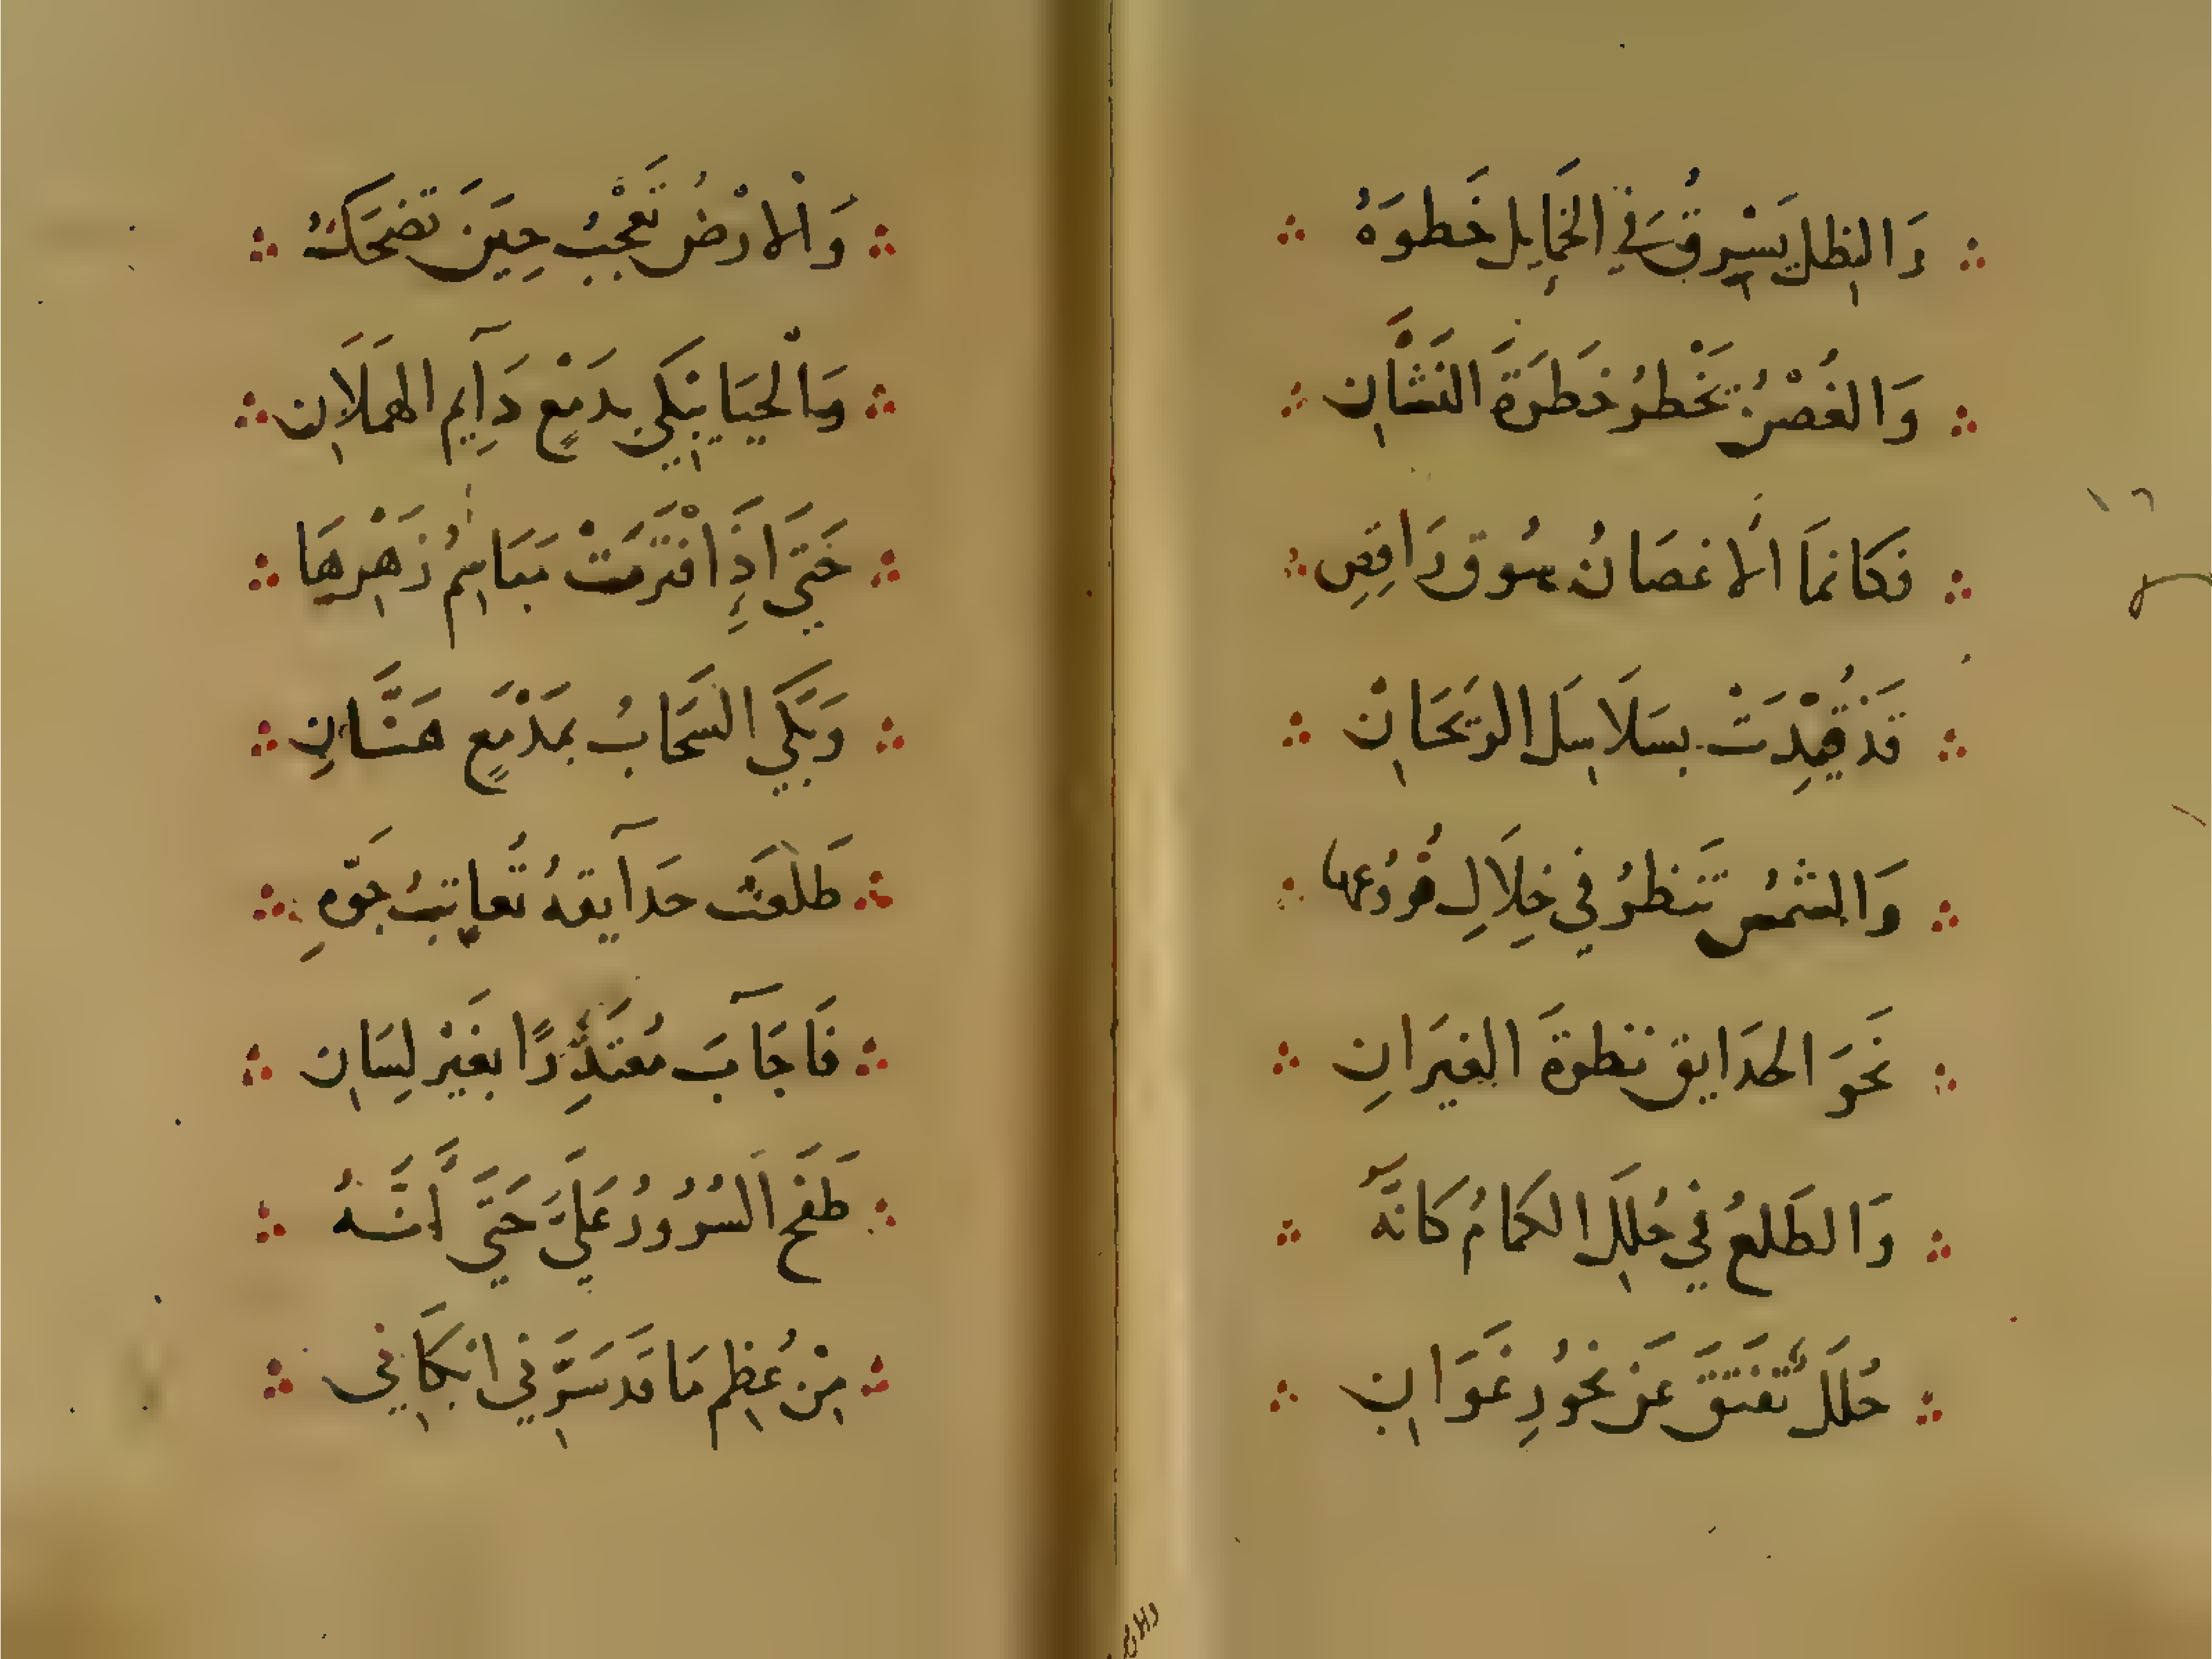 وَالظِل يَسْرِقُ فِي الخَمَايِل خَطوَهُ
وَالغُصْنُ يَخْطرُ خَطرَةَ النَشْوَانِ
فَكَانمَا الَاغصَانُ سُوق رَاقِصٍ
قَدْ قُيِّدَتْ بسَلَاسِلَ الرَيحَانْ
وَالشمسُ تَنظرُ فِي خِلَالِ فُرُوعهَا
نَحوَ الحَدَايق نَظرَةَ الغِيرَانِ
وَالطَلعُ فِي خُلَلِ الكمَامُ كَانَّهُ
حُلَلٌ تَفتقَ عَن نُحُورِ غَوَانِ
وَالْارْضُ تَعْجَبُ حِينَ تَضحَكُ
وَالْحَيَا يَبْكَي بِدَمْعٍ دَآيِمِ الهَمَلَانِ
حَتَّي اذَِا افْتَرَّتْ مَبَاسِمُ زَهْرِهَا
وَبَكَي السَحَابُ بمَدْمَعٍ هَتَّانِ
طَلعَت حَدَآيقهُ تُعَاتِبُ جَوّهِ
فَاجَآبَ مُعتَذِرًا بغَيْرِ لِسَانِ
طَفَحَ السُرُورُ عَلَيَّ حَتَّي أَنَّهُ
مِنْ عُظِم مَا قَد سَرَّنِي ابْكَانِي